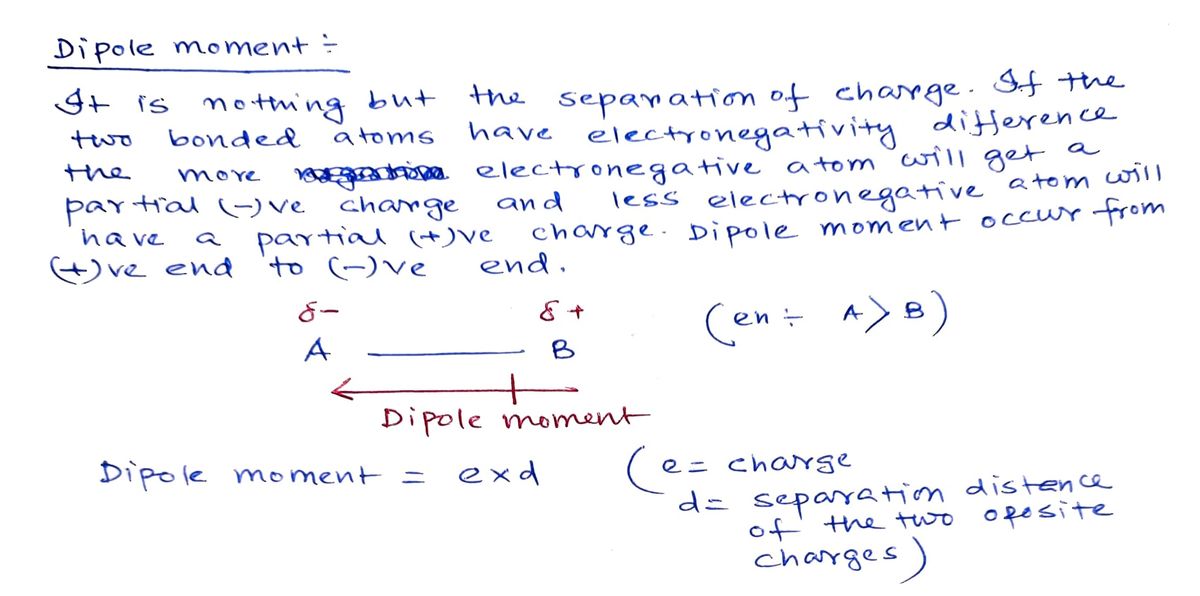 Dipole moment ÷
It is nothing but the separation of charge. If the
two bonded atoms have electronegativity difference
the more electronegative atom will get a
partial (-)ve charge and less electronegative atom will
have a partial (+)ve charge. Dipole moment occur from
(+)ve end to (-)ve end.
δ- δ+
A B (en ÷ A > B)
Dipole moment
Dipole moment = e x d (e = charge
d = separation distence
of the two oposite
charges)